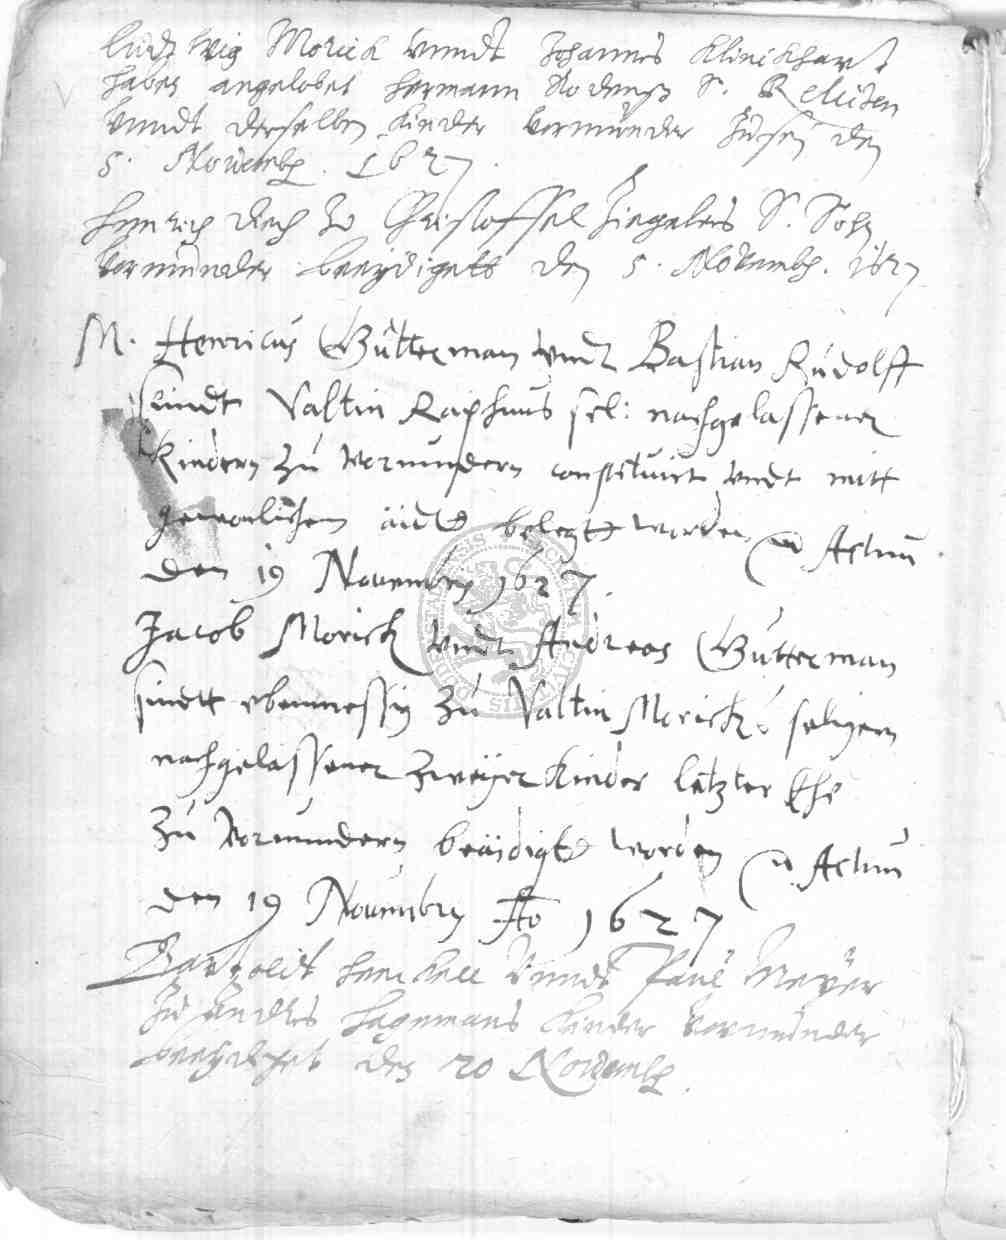 Ludtwig Morick vnndt Johannes Klinckhart
haben angelobet Hermann Rodens S. Relicten
vnndt derselben Kinder Vormünder zu sein den
5. Novemb. 1627
Henrich zu Christoffel Ziegelers S. Sohn
Vormünder beeydigett den 5. Novemb. 1627
M. Henricus Gütterman vndt Bastian Rudolff
sindt Valtin Raphuns sel: nachgelassener
Kindern zu Vormundern constituirt vndt mitt
gewonlichem äidt belegtt worden Actum
den 19 Novembris 1627
Jacob Morick vndt Andreas Gütterman
sindtt ebenmessig zu Valtin Moricks seligen
nachgelassener zweyer Kinder letzter Ehe
zu Vormundern beäidigtt worden Actum
den 19 Novembris Ao 1627
Bartoldt Henckell vnndt Paul Meyer
zu Hagemans Kinder Vormünder
beeydiget den 20 Novemb.